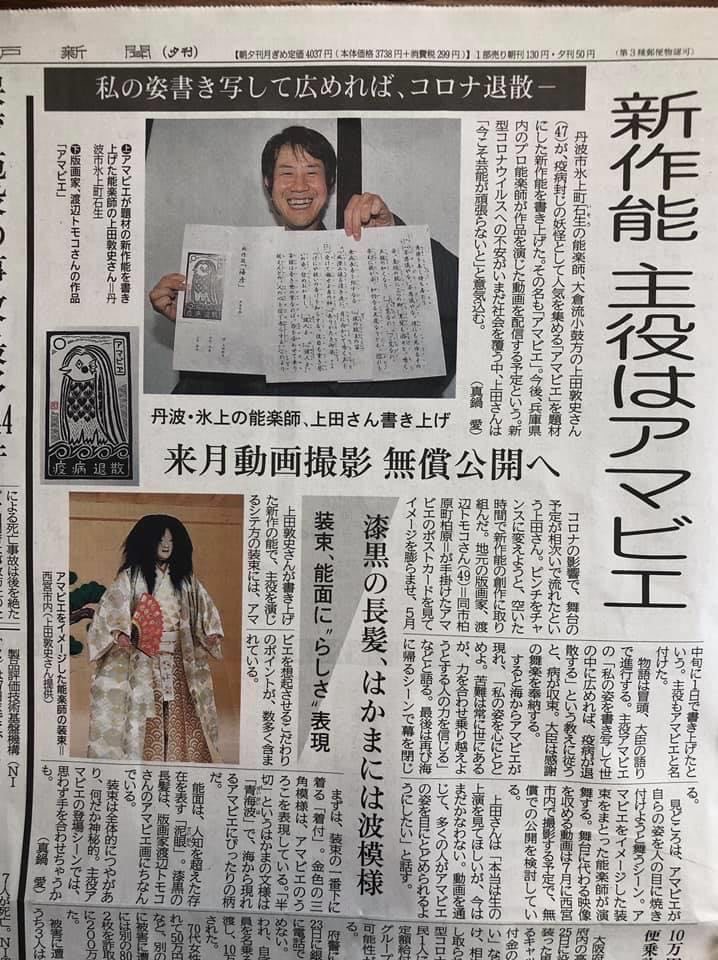 戸 新 聞 (夕刊)
【朝夕刊月ぎめ定価4037円(本体価格3738円+消費税299円)】1部売り朝刊130円・夕刊50円
(第3種郵便物認可)
私の姿書き写して広めれば、コロナ退散―
新作能 主役はアマビエ
丹波市氷上町石生の能楽師、大倉流小鼓方の上田敦史さん
いそう
(47)が、疫病封じの妖怪として人気を集める「アマビエ」を題材
にした新作能を書き上げた。その名も「アマビエ」。今後、兵庫県
内のプロ能楽師が作品を演じた動画を配信する予定という。新
型コロナウイルスへの不安がいまだ社会を覆う中、上田さんは
「今こそ芸能が頑張らないと」と意気込む。
(真鍋 愛)
㊤アマビエが題材の新作能を書き
上げた能楽師の上田敦史さん=丹
波市氷上町石生
㊦版画家、渡辺トモコさんの作品
「アマビエ」
アマビエ
疫病退散
丹波・氷上の能楽師、上田さん書き上げ
来月動画撮影 無償公開へ
コロナの影響で、舞台の
予定が相次いで流れたとい
う上田さん。ピンチをチャ
ンスに変えようと、空いた
時間で新作能の創作に取り
組んだ。地元の版画家、渡
辺トモコさん(49)=同市柏
原町柏原=が手掛けたアマ
ビエのポストカードを見て
イメージを膨らませ、5月
中旬に1日で書き上げたと
いう。主役もアマビエと名
付けた。
物語は冒頭、大臣の語り
で進行する。主役アマビエ
の「私の姿を書き写して世
の中に広めれば、疫病が退
散する」という教えに従う
と、病が収束。大臣は感謝
の舞楽を奉納する。
すると海からアマビエが
現れ、「私の姿を心にとど
めよ。苦難は常に世にある
が、力を合わせ乗り越えよ
うとする人の力を信じる」
などと語る。最後は再び海
に帰るシーンで幕を閉じ
る。
見どころは、アマビエが
自らの姿を人の目に焼き
付けようと舞うシーン。ア
マビエをイメージした装
束をまとった能楽師が演
舞する。舞台に代わる映像
を収める動画は7月に西宮
市内で撮影する予定で、無
償での公開を検討してい
る。
上田さんは「本当は生の
上演を見てほしいが、今は
まだかなわない。動画を通
じて、多くの人がアマビエ
の姿を目にとどめられるよ
うにしたい」と話す。
漆黒の長髪、はかまには波模様
装束、能面に"らしさ"表現
上田敦史さんが書き上げ
た新作の能で、主役を演じ
るシテ方の装束には、アマ
ビエを想起させるこだわり
のポイントが、数多く含ま
れている。
まずは、装束の一番下に
着る「着付」。金色の三
角模様は、アマビエのう
ろこを表現している。「半
切」というはかまの文様は
「青海波」で、海から現れ
るアマビエにぴったりの柄
だ。
能面は、人知を超えた存
在を表す「泥眼」。漆黒の
長髪は、版画家渡辺トモコ
さんのアマビエ画にちなん
でいる。
装束は全体的につやがあ
り、何だか神秘的。主役ア
マビエの登場シーンでは、
思わず手を合わせちゃうか
も。
(真鍋 愛)
アマビエをイメージした能楽師の装束=
西宮市内(上田敦史さん提供)
による死亡事故は後を絶た
製品評価技術基盤機構(NI